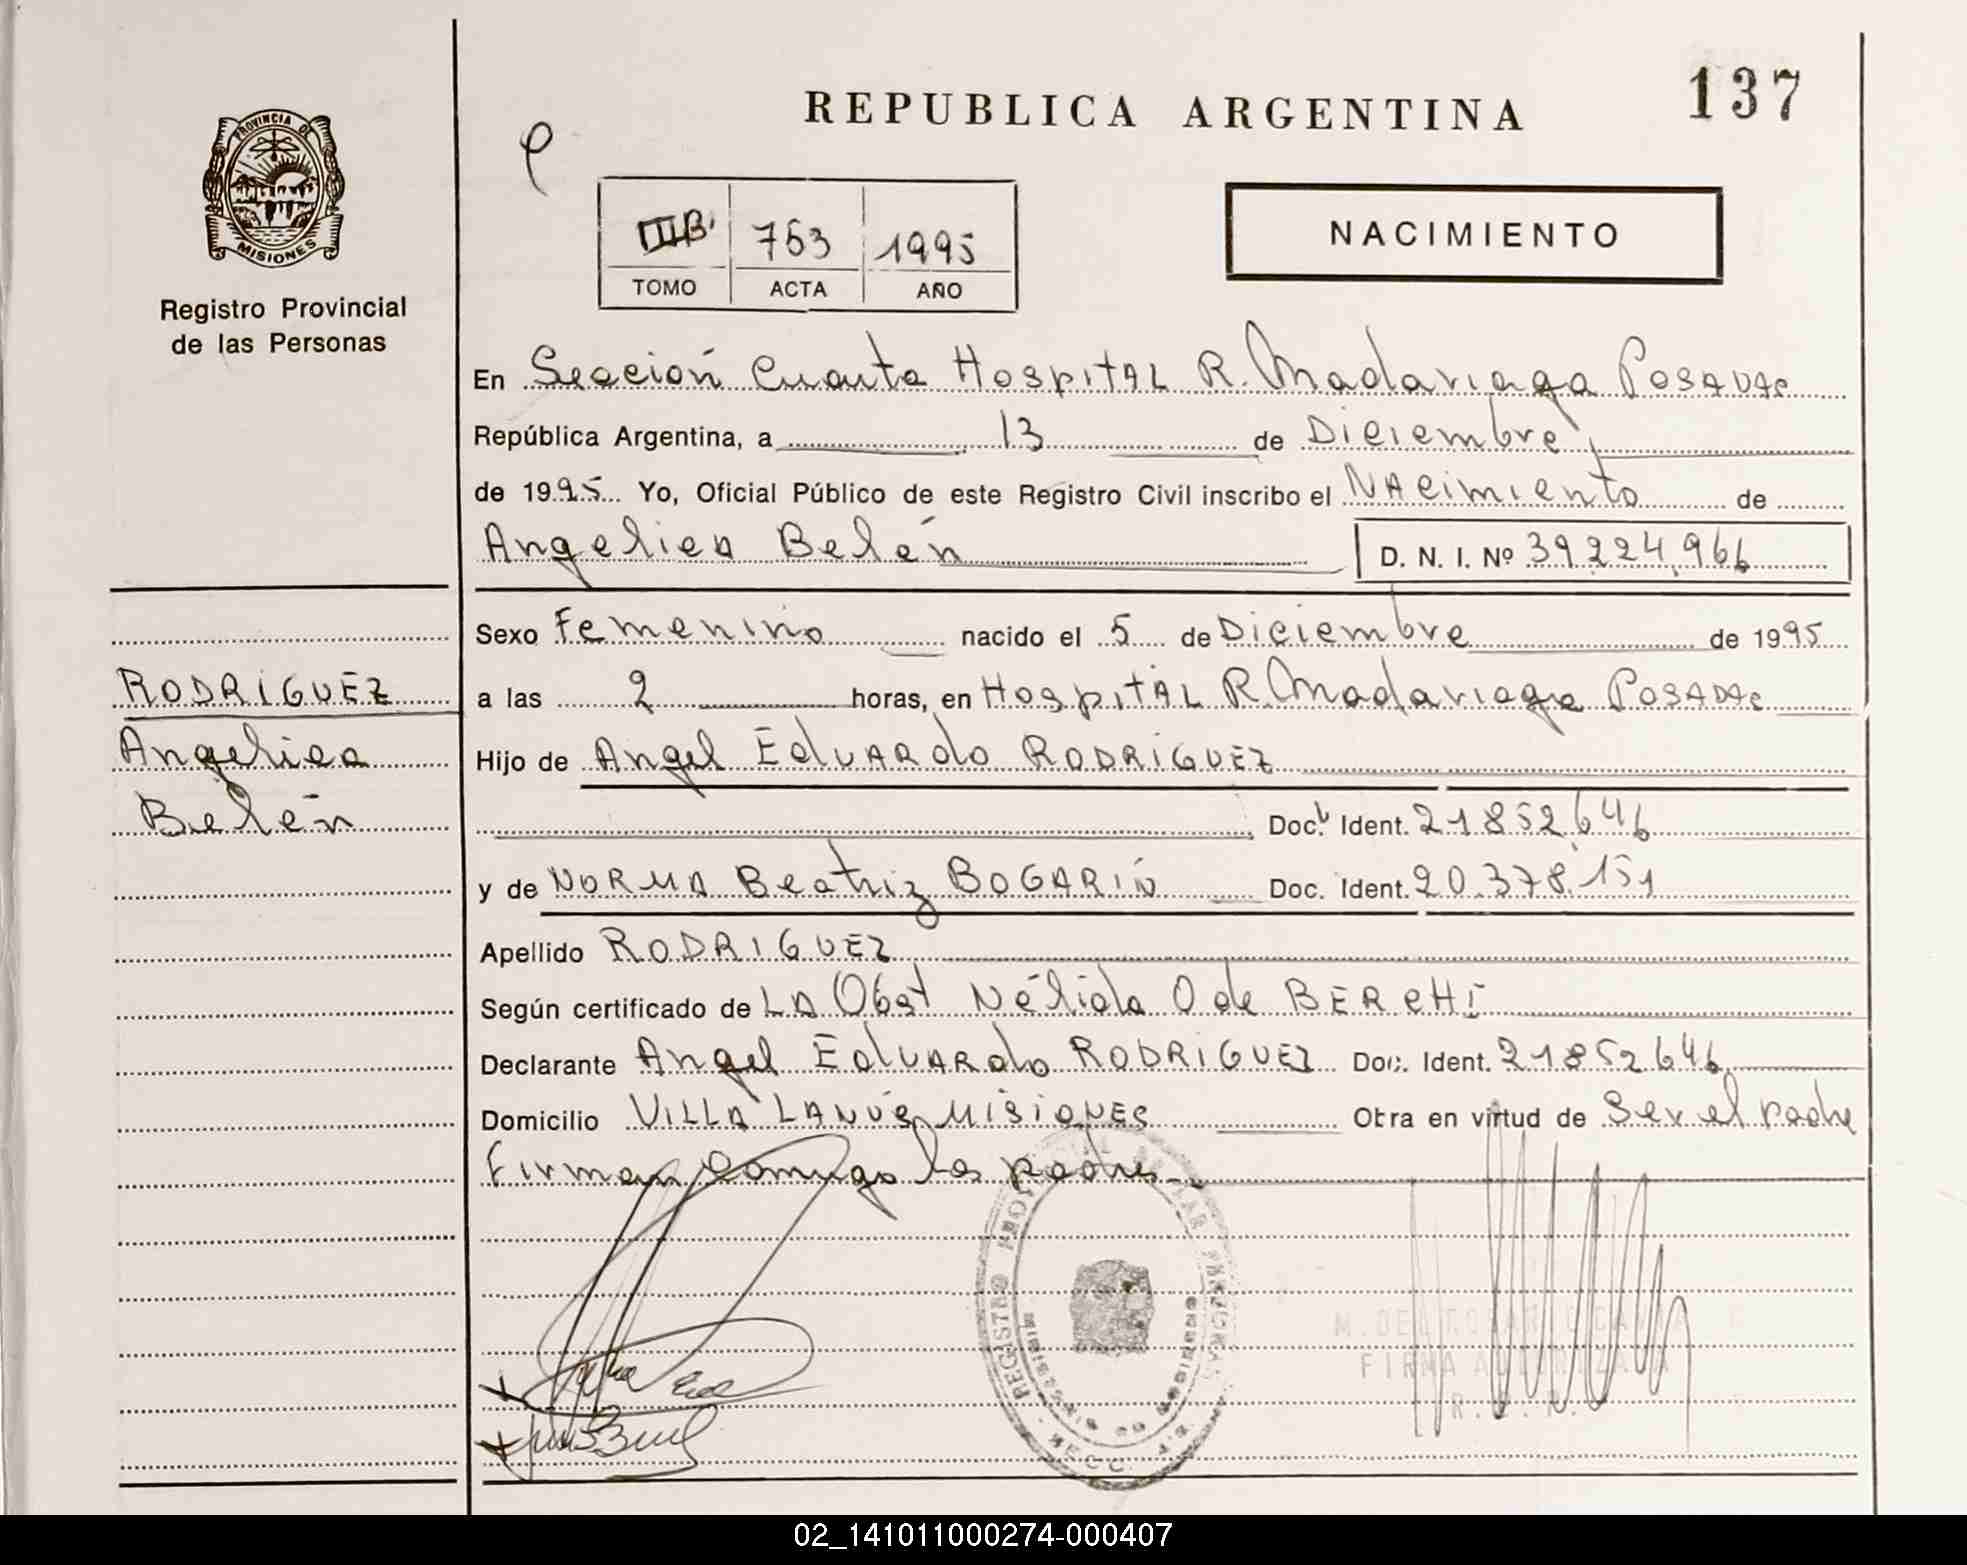 REPUBLICA ARGENTINA
137
PROVINCIA DE
MISIONES
Registro Provincial
de las Personas
NACIMIENTO
III B 763 1995
TOMO ACTA AÑO
En Sección Cuarta Hospital R. Madariaga Posadas
República Argentina, a 13 de Diciembre
de 1995 Yo, Oficial Público de este Registro Civil inscribo el Nacimiento de
Angelica Belén D. N. I. Nº 39.224.966
Sexo Femenino nacido el 5 de Diciembre de 1995
a las 2 horas, en Hospital R. Madariaga Posadas
Hijo de Angel Eduardo RODRIGUEZ
Doc. Ident. 21852646
y de NORMA Beatriz BOGARIN Doc. Ident. 20.378.151
Apellido RODRIGUEZ
Según certificado de LA Obst Nélida O de BERCHI
Declarante Angel Eduardo RODRIGUEZ Doc. Ident. 21852646
Domicilio VILLA LANUS MISIONES Obra en virtud de Ser el padre
Firman conmigo los padres
RODRIGUEZ
Angelica
Belén
REGISTRO
FIRMA AUTORIZADA
02_141011000274-000407